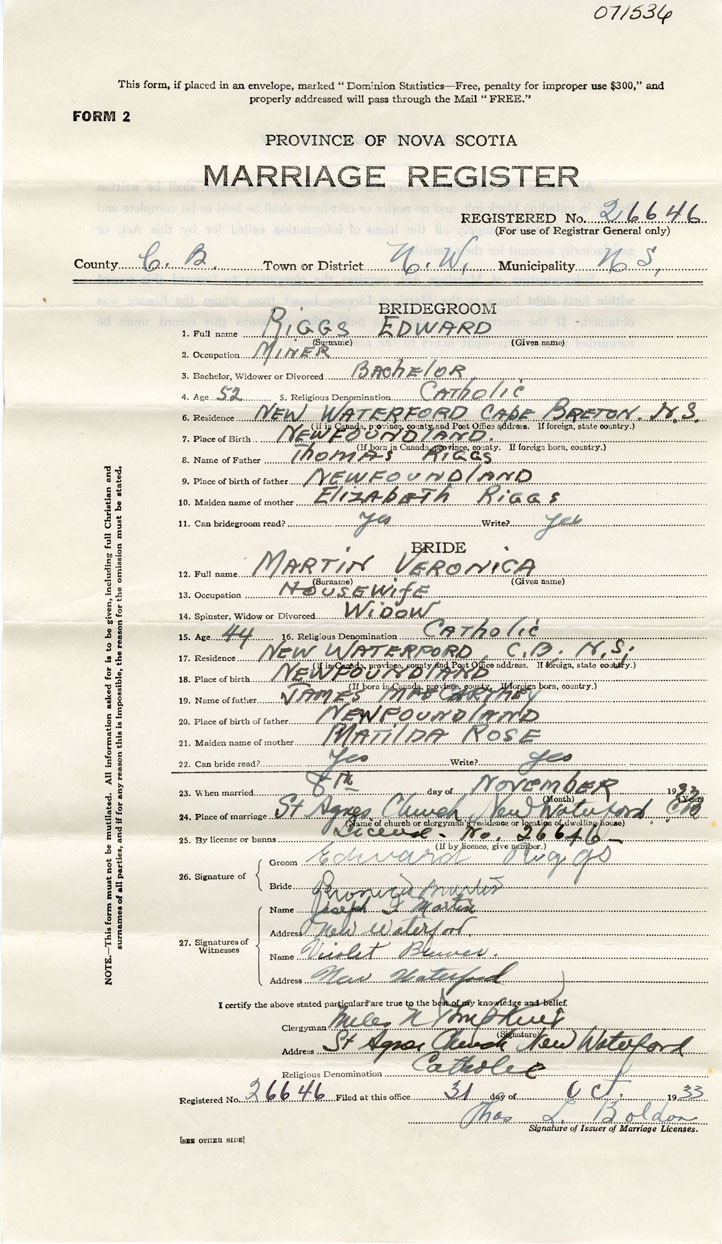 071536
This form, if placed in an envelope, marked "Dominion Statistics—Free, penalty for improper use $300," and
properly addressed will pass through the Mail "FREE."
FORM 2
PROVINCE OF NOVA SCOTIA
MARRIAGE REGISTER
REGISTERED No. 26646
(For use of Registrar General only)
County C. B. Town or District N. W. Municipality N S,
BRIDEGROOM
1. Full name RIGGS EDWARD
(Surname) (Given name)
2. Occupation MINER
3. Bachelor, Widower or Divorced BACHELOR
4. Age 52 5. Religious Denomination CATHOLIC
6. Residence NEW WATERFORD CAPE BRETON. N.S.
(if in Canada, province, county and Post Office address. If foreign, state country.)
7. Place of Birth NEWFOUNDLAND.
(If born in Canada, province, county. If foreign born, country.)
8. Name of Father THOMAS RIGGS
9. Place of birth of father NEWFOUNDLAND
10. Maiden name of mother ELIZABETH RIGGS
11. Can bridegroom read? yes Write? yes
BRIDE
12. Full name MARTIN VERONICA
(Surname) (Given name)
13. Occupation HOUSEWIFE
14. Spinster, Widow or Divorced WIDOW
15. Age 44 16. Religious Denomination CATHOLIC
17. Residence NEW WATERFORD, C.B. N.S.
(if in Canada, province, county and Post Office address. If foreign, state country.)
18. Place of birth NEWFOUNDLAND
(If born in Canada, province, county. If foreign born, country.)
19. Name of father JAMES
20. Place of birth of father NEWFOUNDLAND
21. Maiden name of mother MATILDA ROSE
22. Can bride read? Yes Write? yes
23. When married 8th day of NOVEMBER 1933
(Month) (Year)
24. Place of marriage St Agnes Church, New Waterford CB
(Name of church or clergyman's residence or location of dwelling house)
25. By license or banns License - No. 26646
(If by licence, give number.)
26. Signature of
Groom Edward Riggs
Bride Veronica Martin
27. Signatures of Witnesses
Name Joseph Martin
Address New Waterford
Name Violet
Address New Waterford
I certify the above stated particulars are true to the best of my knowledge and belief.
Clergyman Miles N Tompkins
(Signature)
Address St Agnes Church New Waterford
Religious Denomination Catholic
Registered No. 26646 Filed at this office 31 day of Oct. 1933
Thos L. Boldon
Signature of Issuer of Marriage Licenses.
[SEE OTHER SIDE]
NOTE.—This form must not be mutilated. All information asked for is to be given, including full Christian and
surnames of all parties, and if for any reason this is impossible, the reason for the omission must be stated.